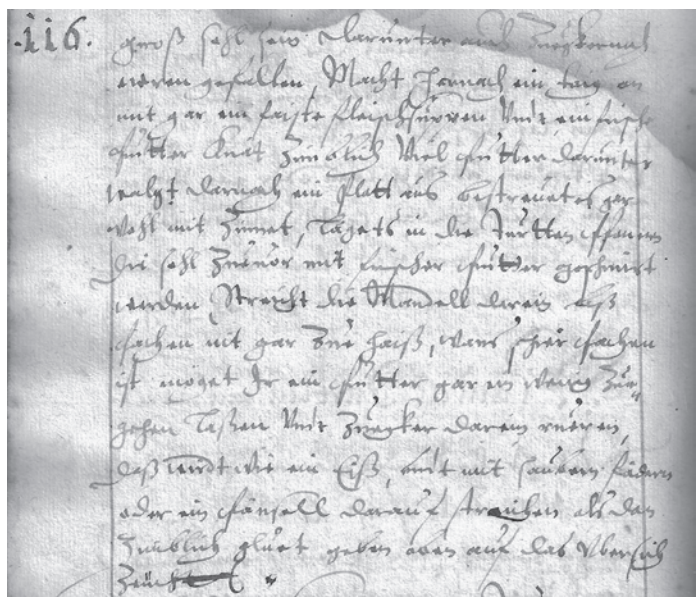 .116.
groß sehl sein darunter auch Zugkernach
weren gefallen, Macht hernach ein taig an
mit gar ein faiste fleischsuppen Vnd ein frische
Putter Knat Zimblich Viel Putter darunter
walgt darnach ein Platt aus bestreuet es gar
wohl mit Zimet, Legets in die Turtten Pfannen
die sehl Zuuor mit frischer Putter geschmirt
werden, Streicht die Mandell darein
Pachen nit gar Zue haiß, wans schier Pachen
ist möget Ir ein Putter gar ein wenig Zue
gehen Laßen Vnd Zugker darein rueren,
daß wirdt wie ein Eiß, vnd mit saubern federn
oder ein Pänsell darauf streichen als dan
Zimblich gluet geben oben auf das Vbersich
Zeücht